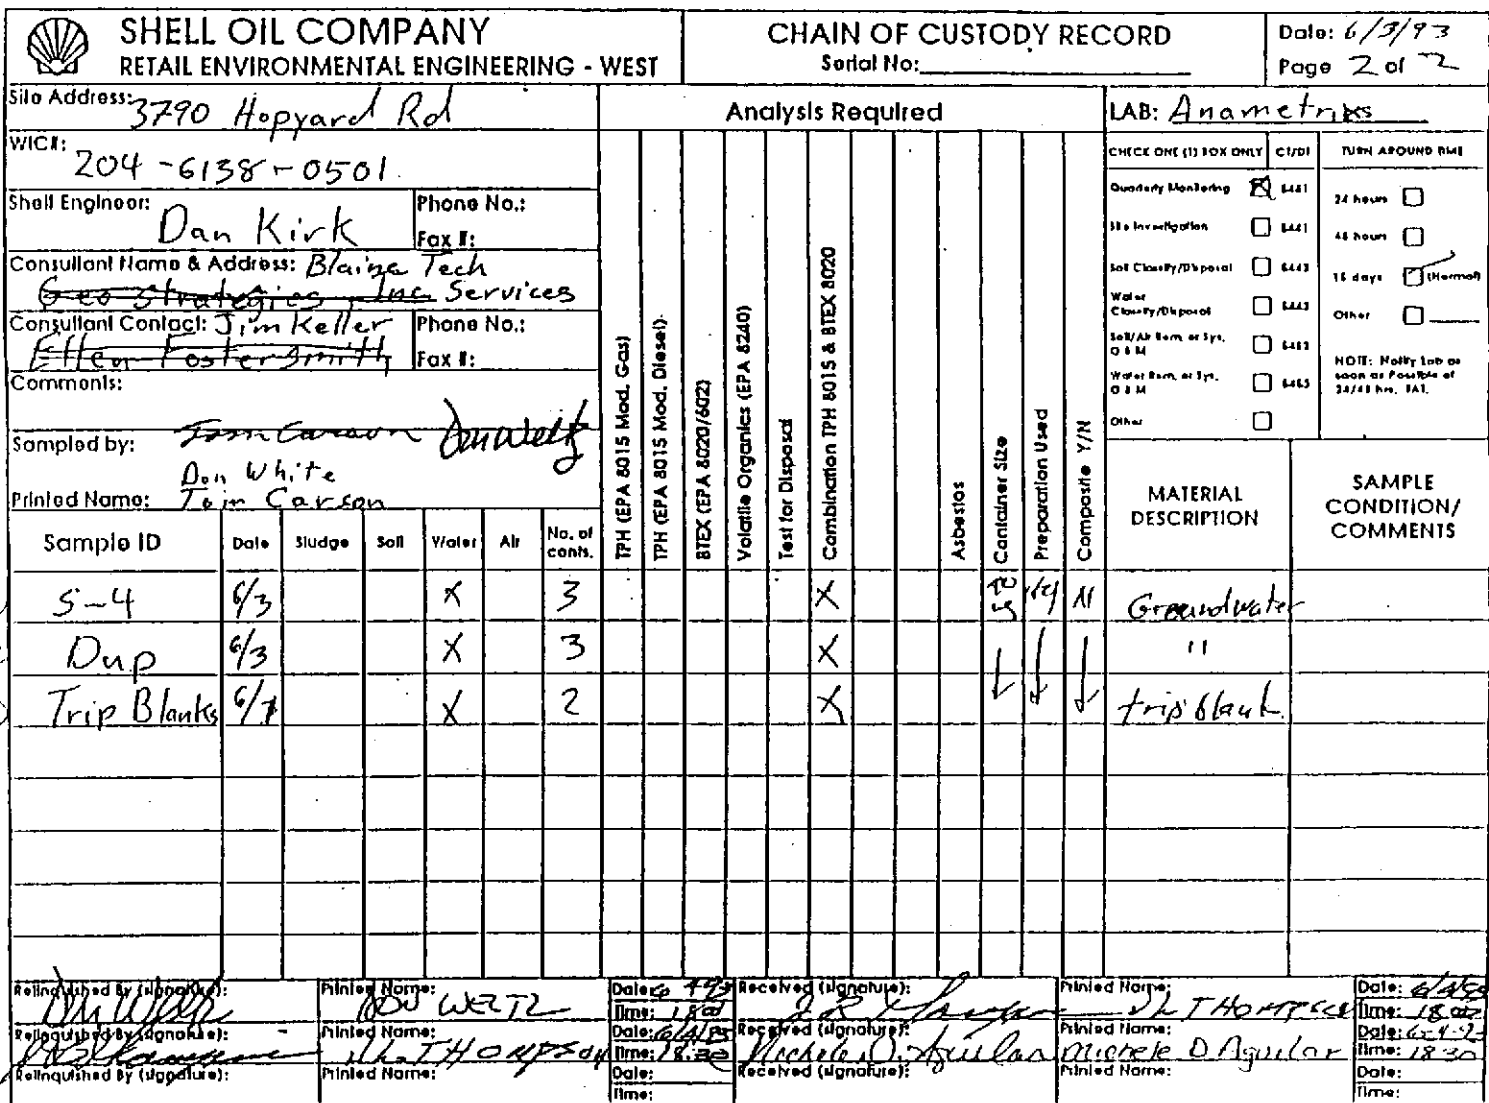 SHELL OIL COMPANY
RETAIL ENVIRONMENTAL ENGINEERING - WEST
CHAIN OF CUSTODY RECORD
Serial No:
Date: 6/3/93
Page 2 of 2
Site Address: 3790 Hopyard Rd
WIC#: 204-6138-0501
Shell Engineer: Dan Kirk
Phone No.:
Fax #:
Consultant Name & Address: Blaine Tech
Geo Strategies, Inc. Services
Consultant Contact: Jim Keller
Ellen Fostersmith
Phone No.:
Fax #:
Comments:
Sampled by: Tom Carson
Don White
Printed Name: Tom Carson
Analysis Required
LAB: Anametrix
CHECK ONE (1) BOX ONLY CT/DT
TURN AROUND TIME
Quarterly Monitoring 6441
Site Investigation 6441
Soil Classify/Disposal 6442
Water Classify/Disposal 6443
Soil/Air Rem. or Sys. O & M 6452
Water Rem. or Sys. O & M 6453
Other
24 hours
48 hours
15 days (Normal)
Other
NOTE: Notify Lab as soon as Possible of 24/48 hrs. TAT.
TPH (EPA 8015 Mod. Gas)
TPH (EPA 8015 Mod. Diesel)
BTEX (EPA 8020/602)
Volatile Organics (EPA 8240)
Test for Disposal
Combination TPH 8015 & BTEX 8020
Asbestos
Container Size
Preparation Used
Composite Y/N
MATERIAL DESCRIPTION
SAMPLE CONDITION/ COMMENTS
Sample ID Date Sludge Soil Water Air No. of conts.
S-4 6/3 X 3 X N Groundwater
Dup 6/3 X 3 X "
Trip Blanks X 2 X trip blank
Relinquished By (signature): Printed Name: DON WELTZ Date: Time: 1800 Received (signature): Printed Name: THOMPSON Date: Time: 1800
Relinquished By (signature): Printed Name: THOMPSON Date: 6/4/93 Time: 18:30 Received (signature): Michele D. Aguilar Printed Name: Michele D Aguilar Date: 6-4-93 Time: 1830
Relinquished By (signature): Printed Name: Date: Time: Received (signature): Printed Name: Date: Time: